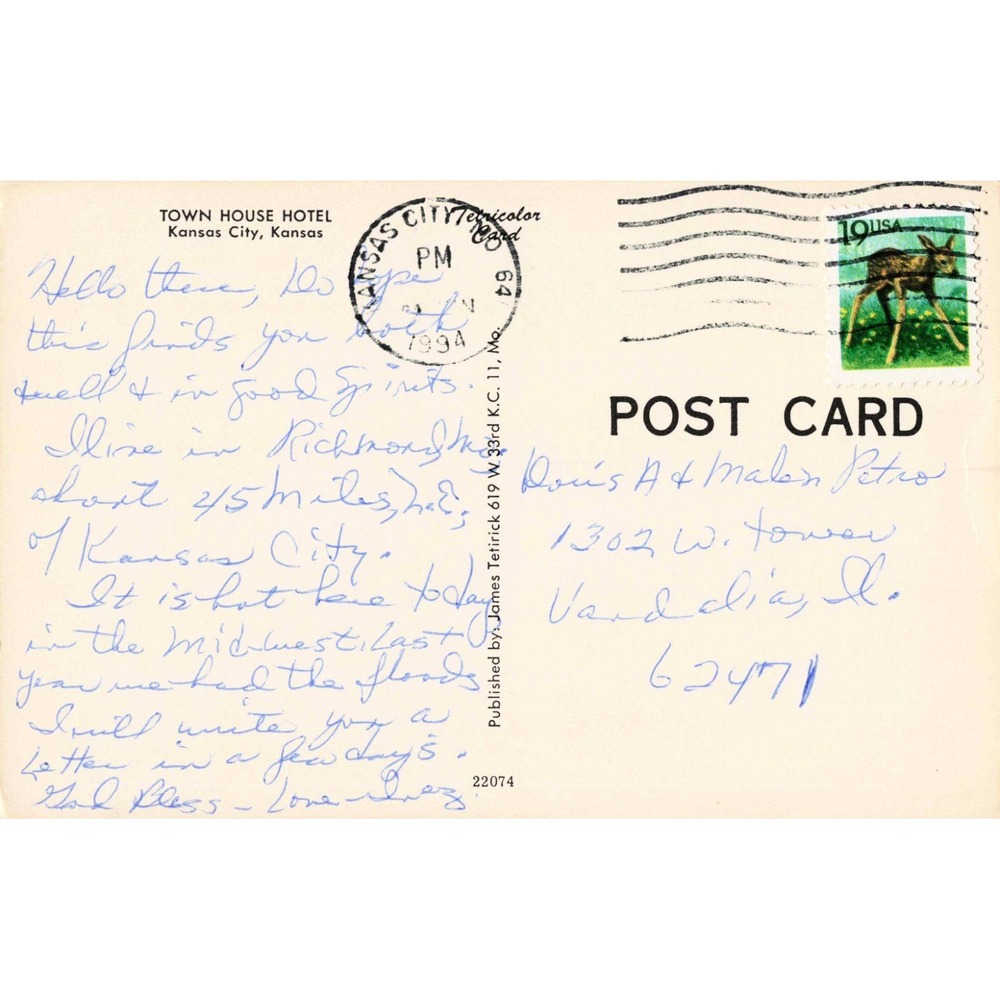 TOWN HOUSE HOTEL
Kansas City, Kansas
Tetricolor
Card
KANSAS CITY MO 64
PM
1994
19USA
Hello there, Do hope
this finds you both
well & in good Spirits.
I live in Richmond, Mo.
short 45 Miles, N.E.,
of Kansas City.
It is hot here today
in the Midwest. Last
year we had the floods
I will write you a
Letter in a few days.
God Bless – Love – Inez.
Published by: James Tetirick 619 W 33rd K.C. 11, Mo.
22074
POST CARD
Doris A & Petro
1302 W. tower
Vandalia, Il.
62471